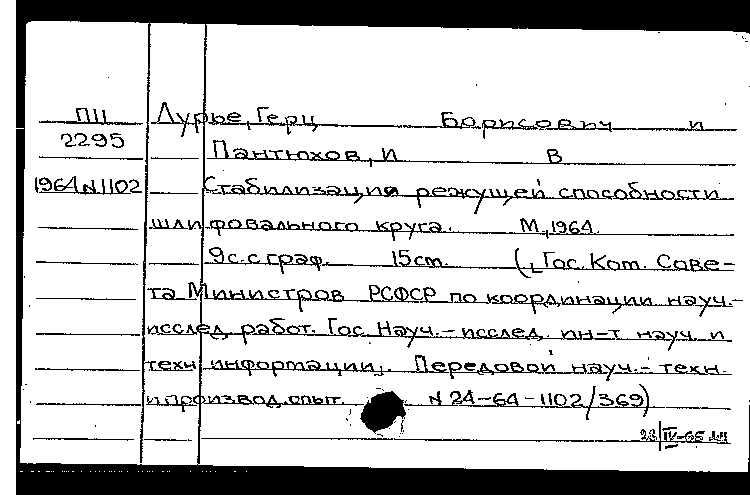 ПII Лурье, Герц Борисович и
2295 Пантюхов, И В
1964 N 1102 Стабилизация режущей способности
шлифовального круга. М., 1964.
9 с. с граф. 15 см. (Гос. Ком. Сове-
та Министров РСФСР по координации науч.-
исслед. работ. Гос. Науч.-исслед. ин-т науч. и
техн информации. Передовой науч.-техн.
и производ. опыт. N 24-64-1102/369)